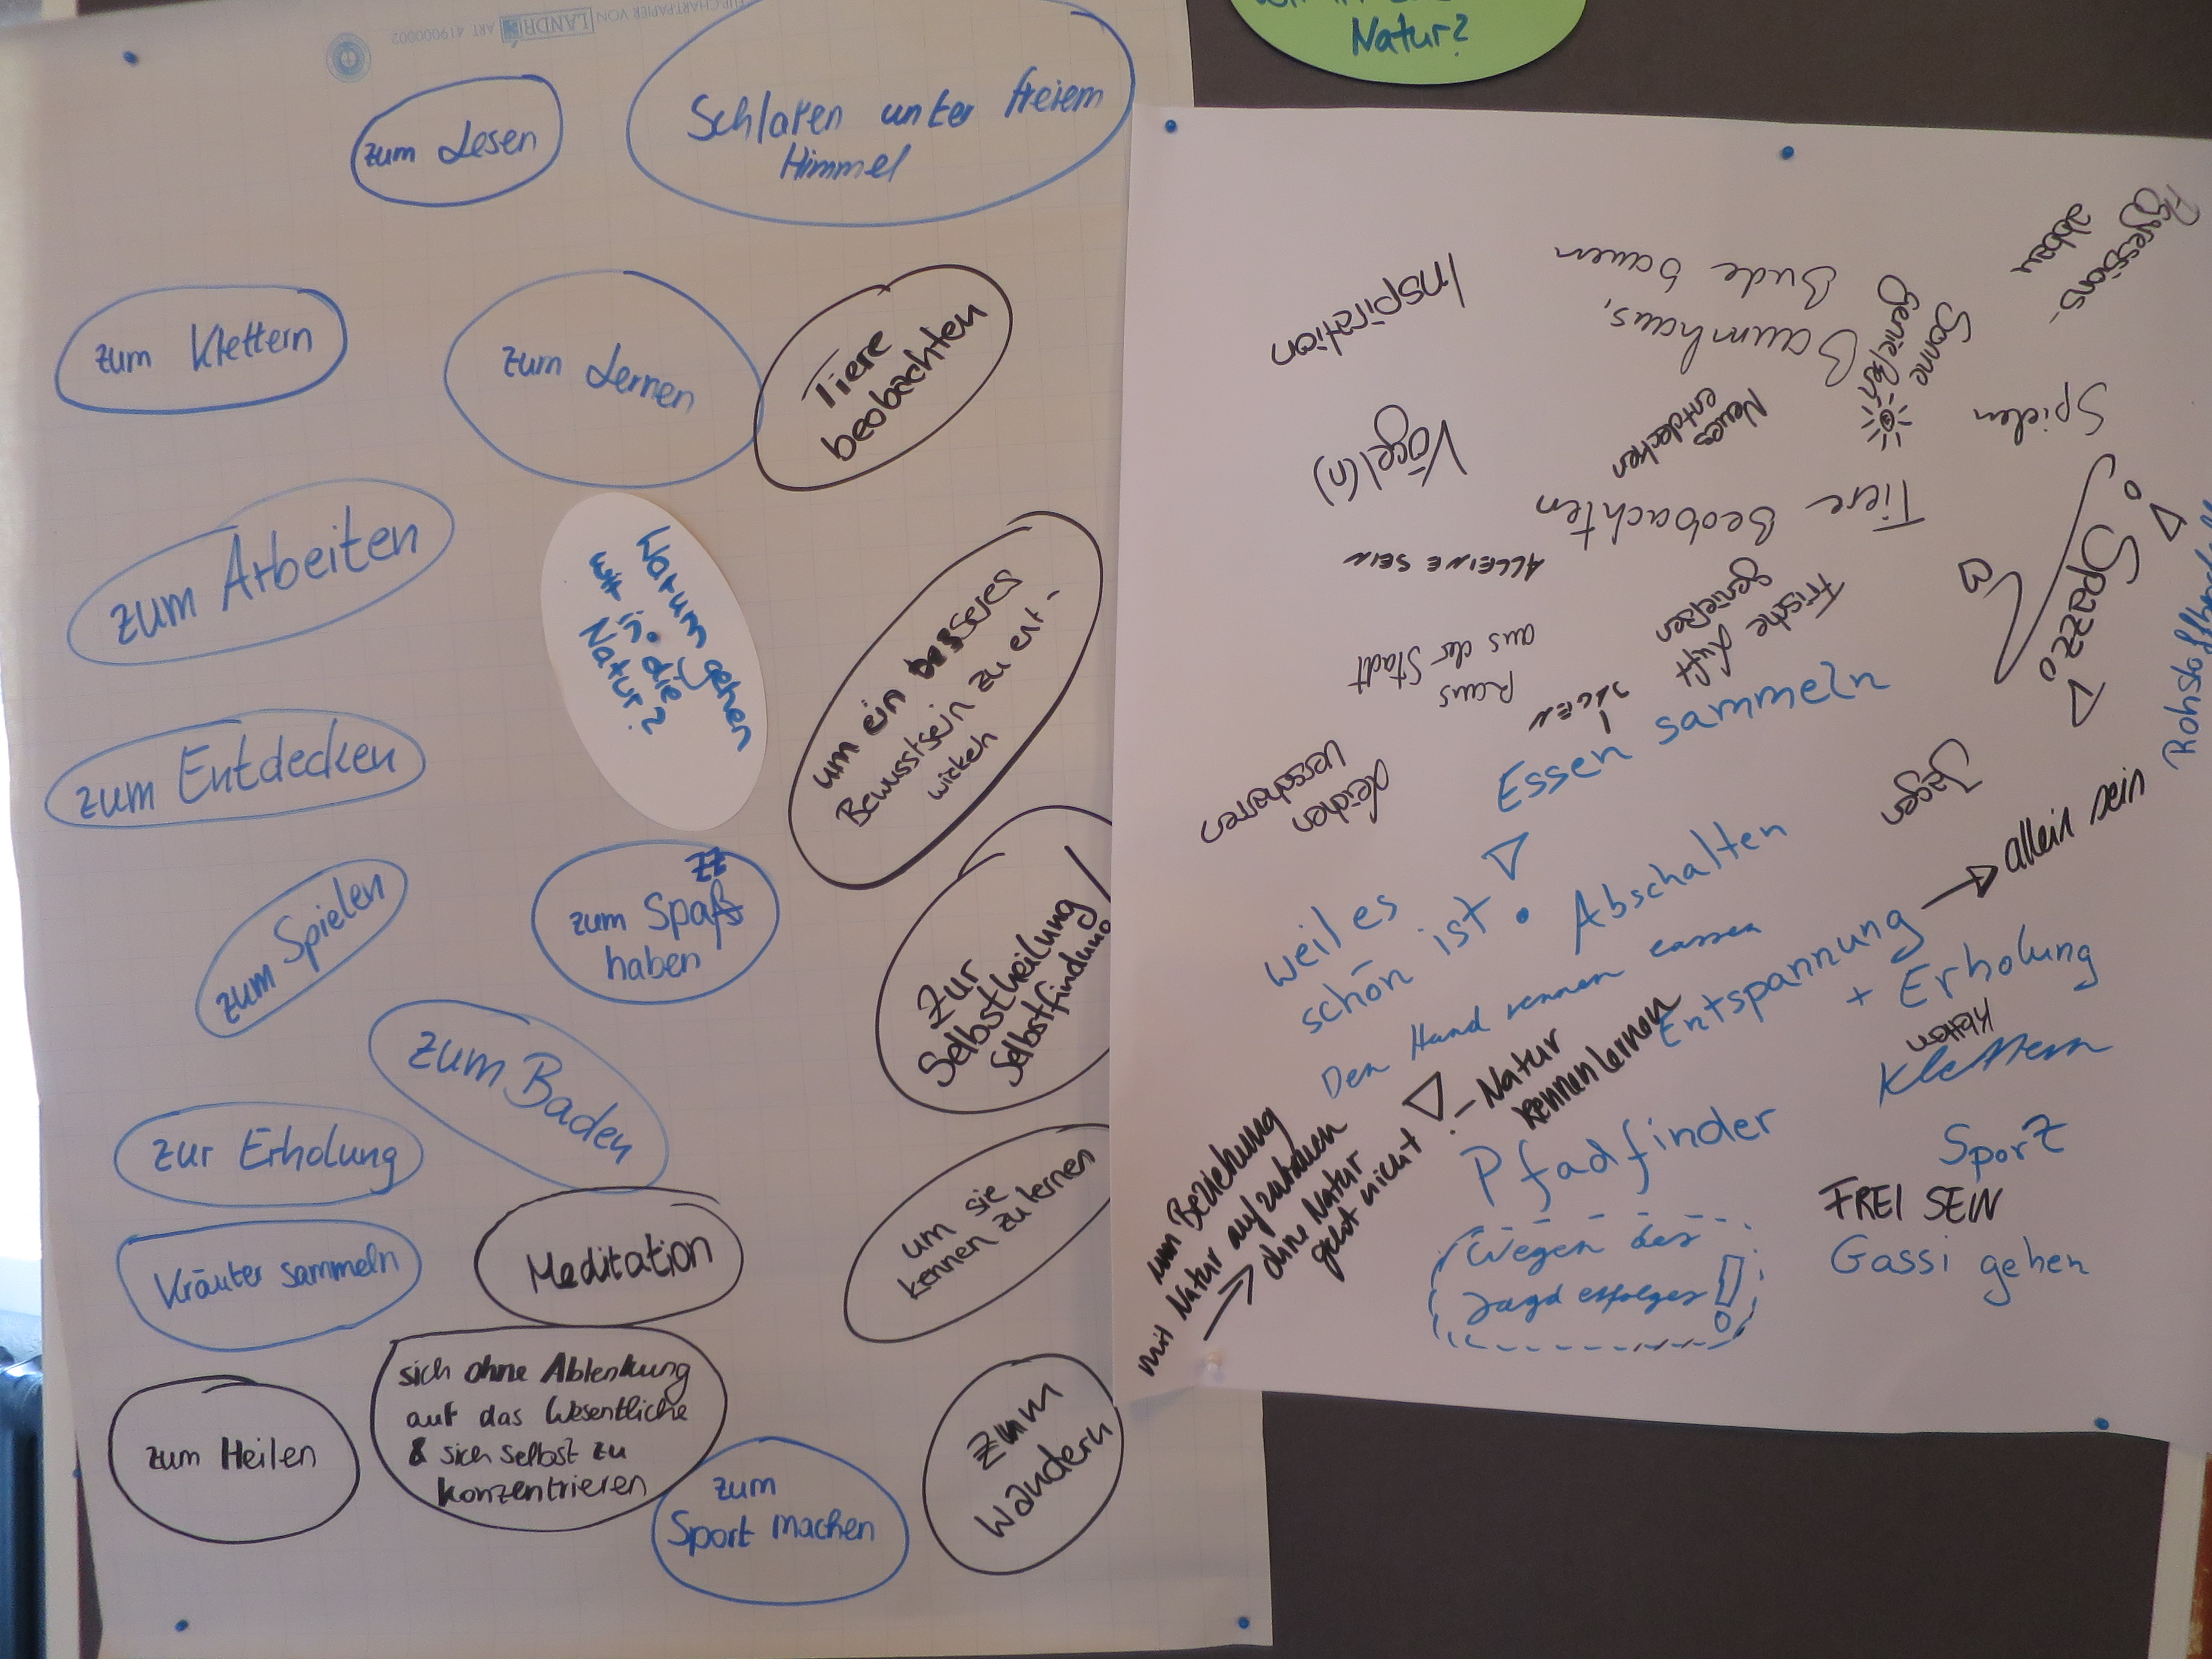 LANDRÉ ART. 419000002
zum Lesen
Schlafen unter freiem
Himmel
zum Klettern
zum Lernen
Tiere
beobachten
zum Arbeiten
Warum gehen
wir in die
Natur?
um ein besseres
Bewusstsein zu ent-
wickeln
zum Entdecken
zum Spielen
zum Spaß
haben
zur
Selbstheilung
Selbstfindung
zum Baden
zur Erholung
um sie
kennen zu lernen
Kräuter sammeln
Meditation
zum Heilen
sich ohne Ablenkung
auf das Wesentliche
& sich selbst zu
konzentrieren
zum
Sport machen
zum
Wandern
Natur?
Aggressions-
abbau
Baumhaus,
Bude bauen
Inspiration
Sonne
genießen
Spielen
Neues
entdecken
Vögel(n)
Tiere Beobachten
ALLEINE SEIN
Spazzo
Frische Luft
genießen
Raus
aus der Stadt
Leichen
verscharren
Essen sammeln
Jagen
weil es
schön ist.
Abschalten
Den Hund rennen lassen
Entspannung
allein sein
+ Erholung
Klettern
Klettern
Natur
kennenlernen
um Beziehung
mit Natur aufzubauen
ohne Natur
geht nicht
Pfadfinder
Sport
FREI SEIN
Gassi gehen
Wegen des
Jagd erfolges!